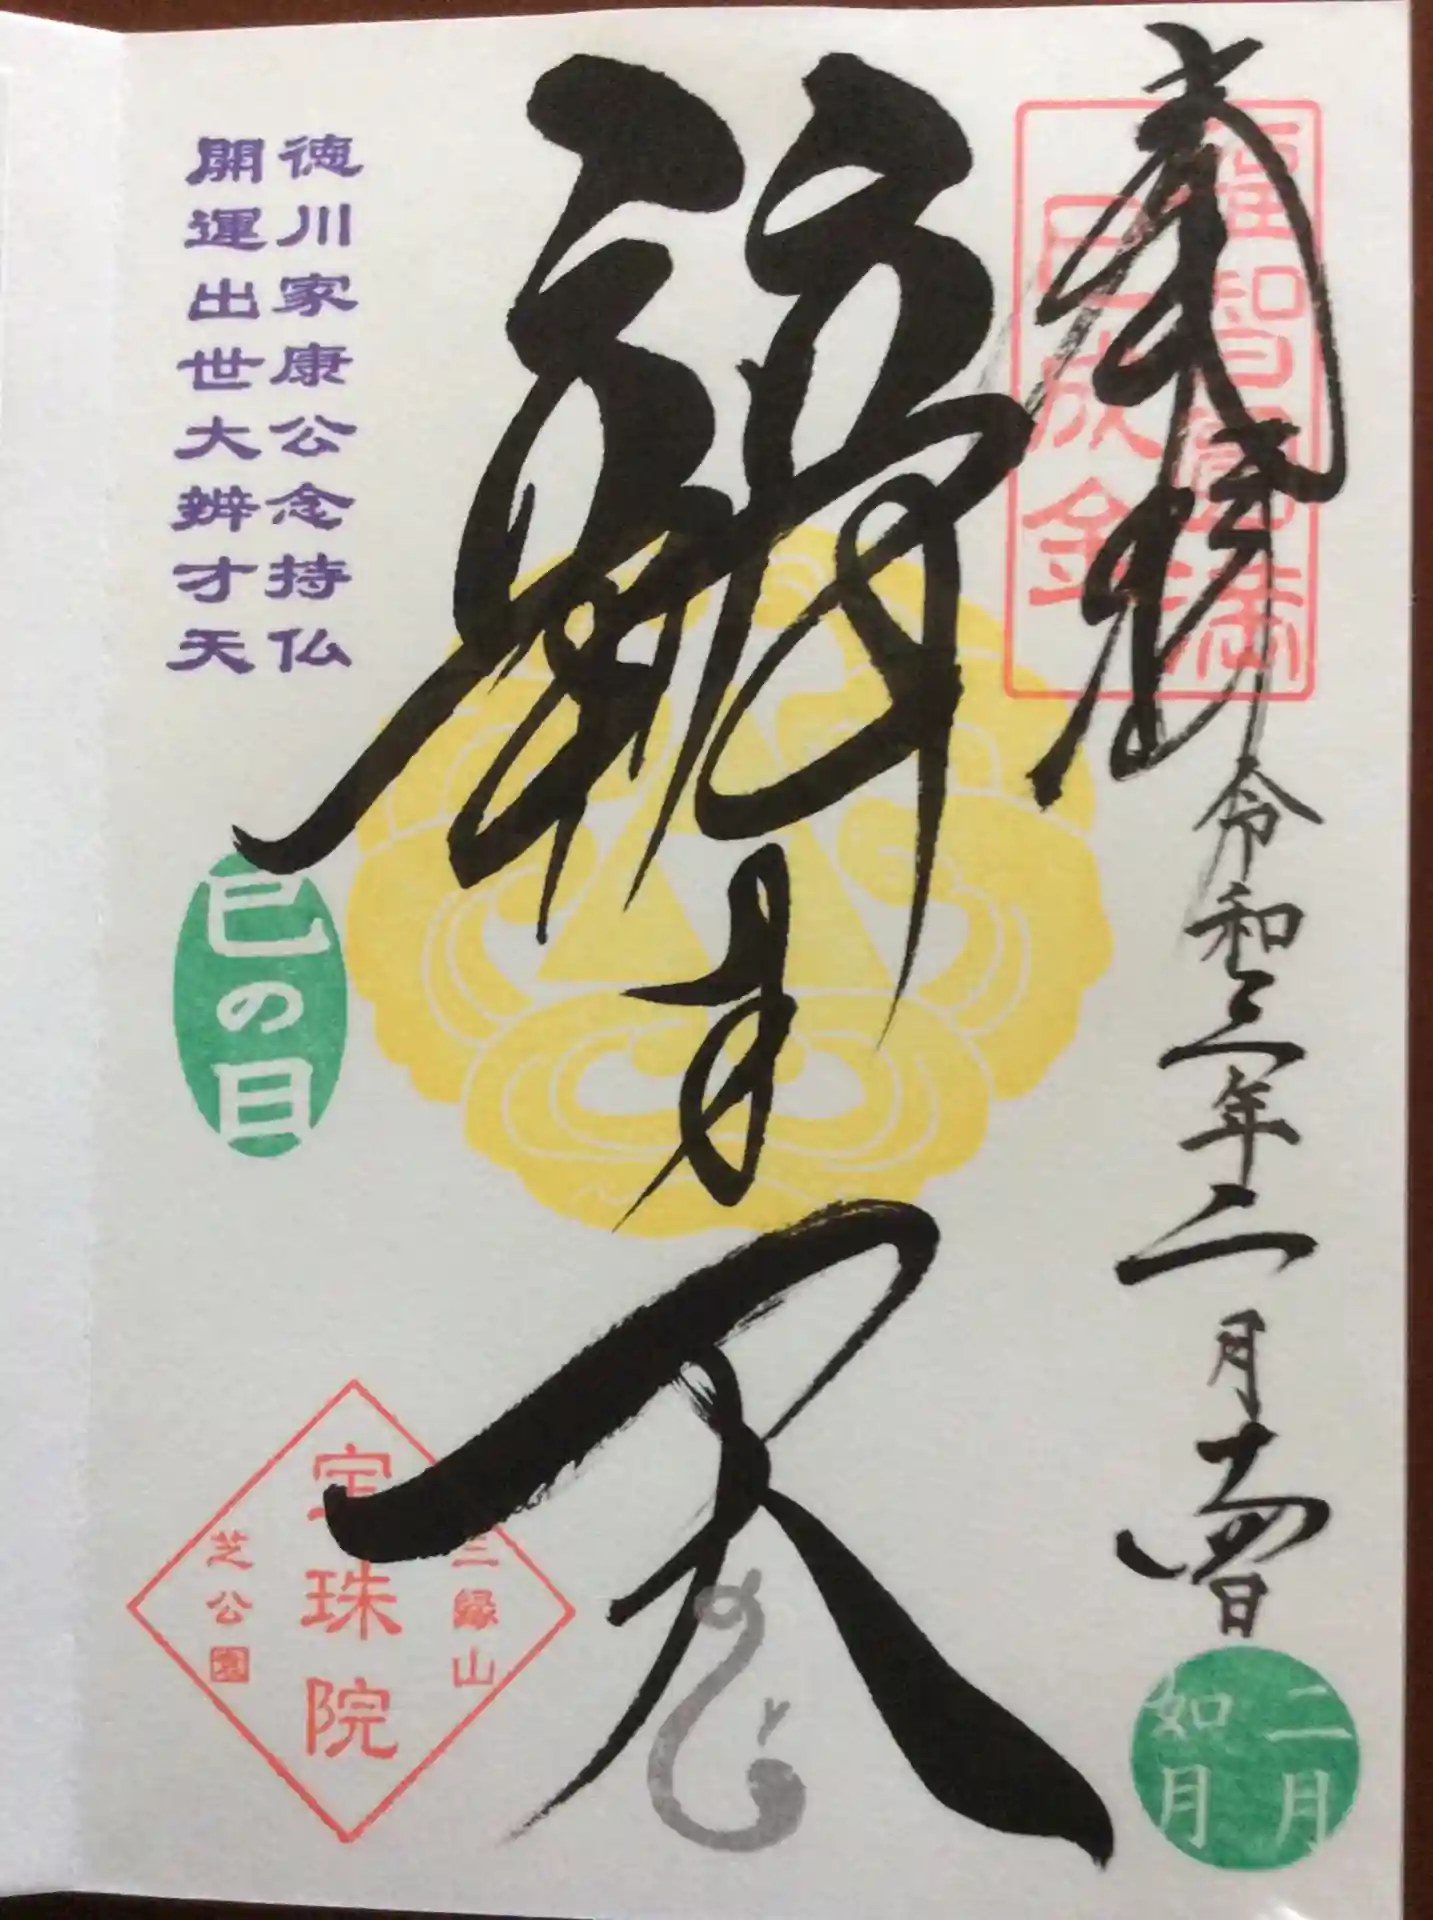 奉拝
令和三年二月十四日
福智圓満
巳成金
二月
如月
辨才天
徳川家康公念持仏
開運出世大辨才天
巳の日
三縁山
宝珠院
芝公園